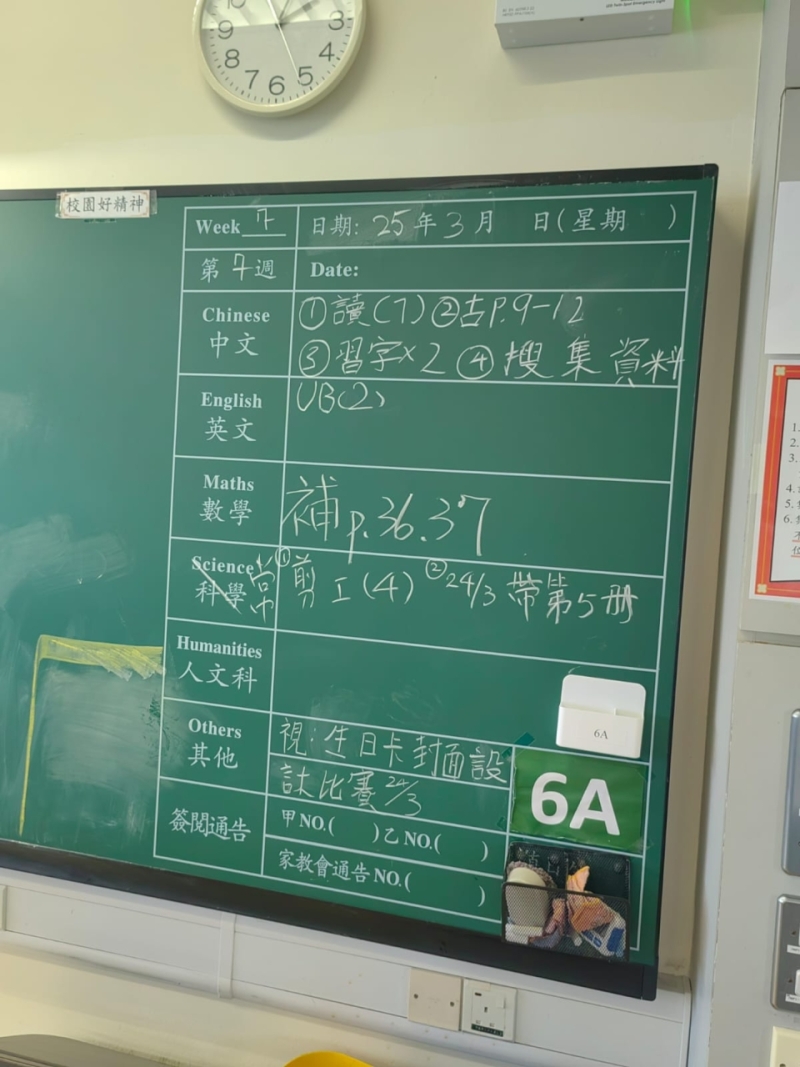 校園好精神
Week 7 日期: 25年3月 日(星期 )
第7週 Date:
Chinese 中文
①讀(7) ②古P.9-12
③習字×2 ④搜集資料
English 英文
UB(2)
Maths 數學
補p.36.37
Science 科學 常
①剪工(4) ②24/3 帶第5册
Humanities 人文科
Others 其他
視:生日卡封面設
計比賽 24/3
簽閱通告
甲NO.( )乙NO.( )
家教會通告NO.( )
6A
6A
10
3
4
5
6
7
8
9